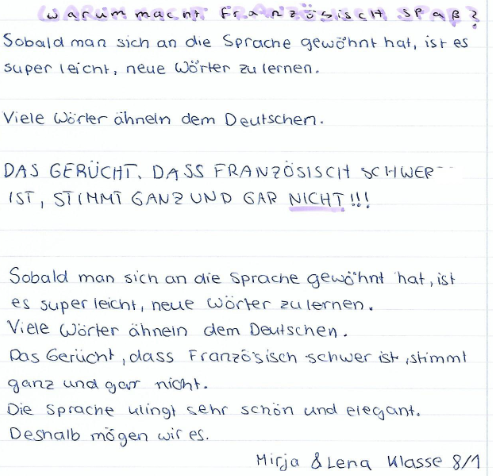 Warum macht Französisch Spaß?
Sobald man sich an die Sprache gewöhnt hat, ist es
super leicht, neue Wörter zu lernen.
Viele Wörter ähneln dem Deutschen.
DAS GERÜCHT, DASS FRANZÖSISCH SCHWER
IST, STIMMT GANZ UND GAR NICHT!!!
Sobald man sich an die Sprache gewöhnt hat, ist
es super leicht, neue Wörter zu lernen.
Viele Wörter ähneln dem Deutschen.
Das Gerücht, dass Französisch schwer ist, stimmt
ganz und gar nicht.
Die Sprache klingt sehr schön und elegant.
Deshalb mögen wir es.
Mirja & Lena Klasse 8/1